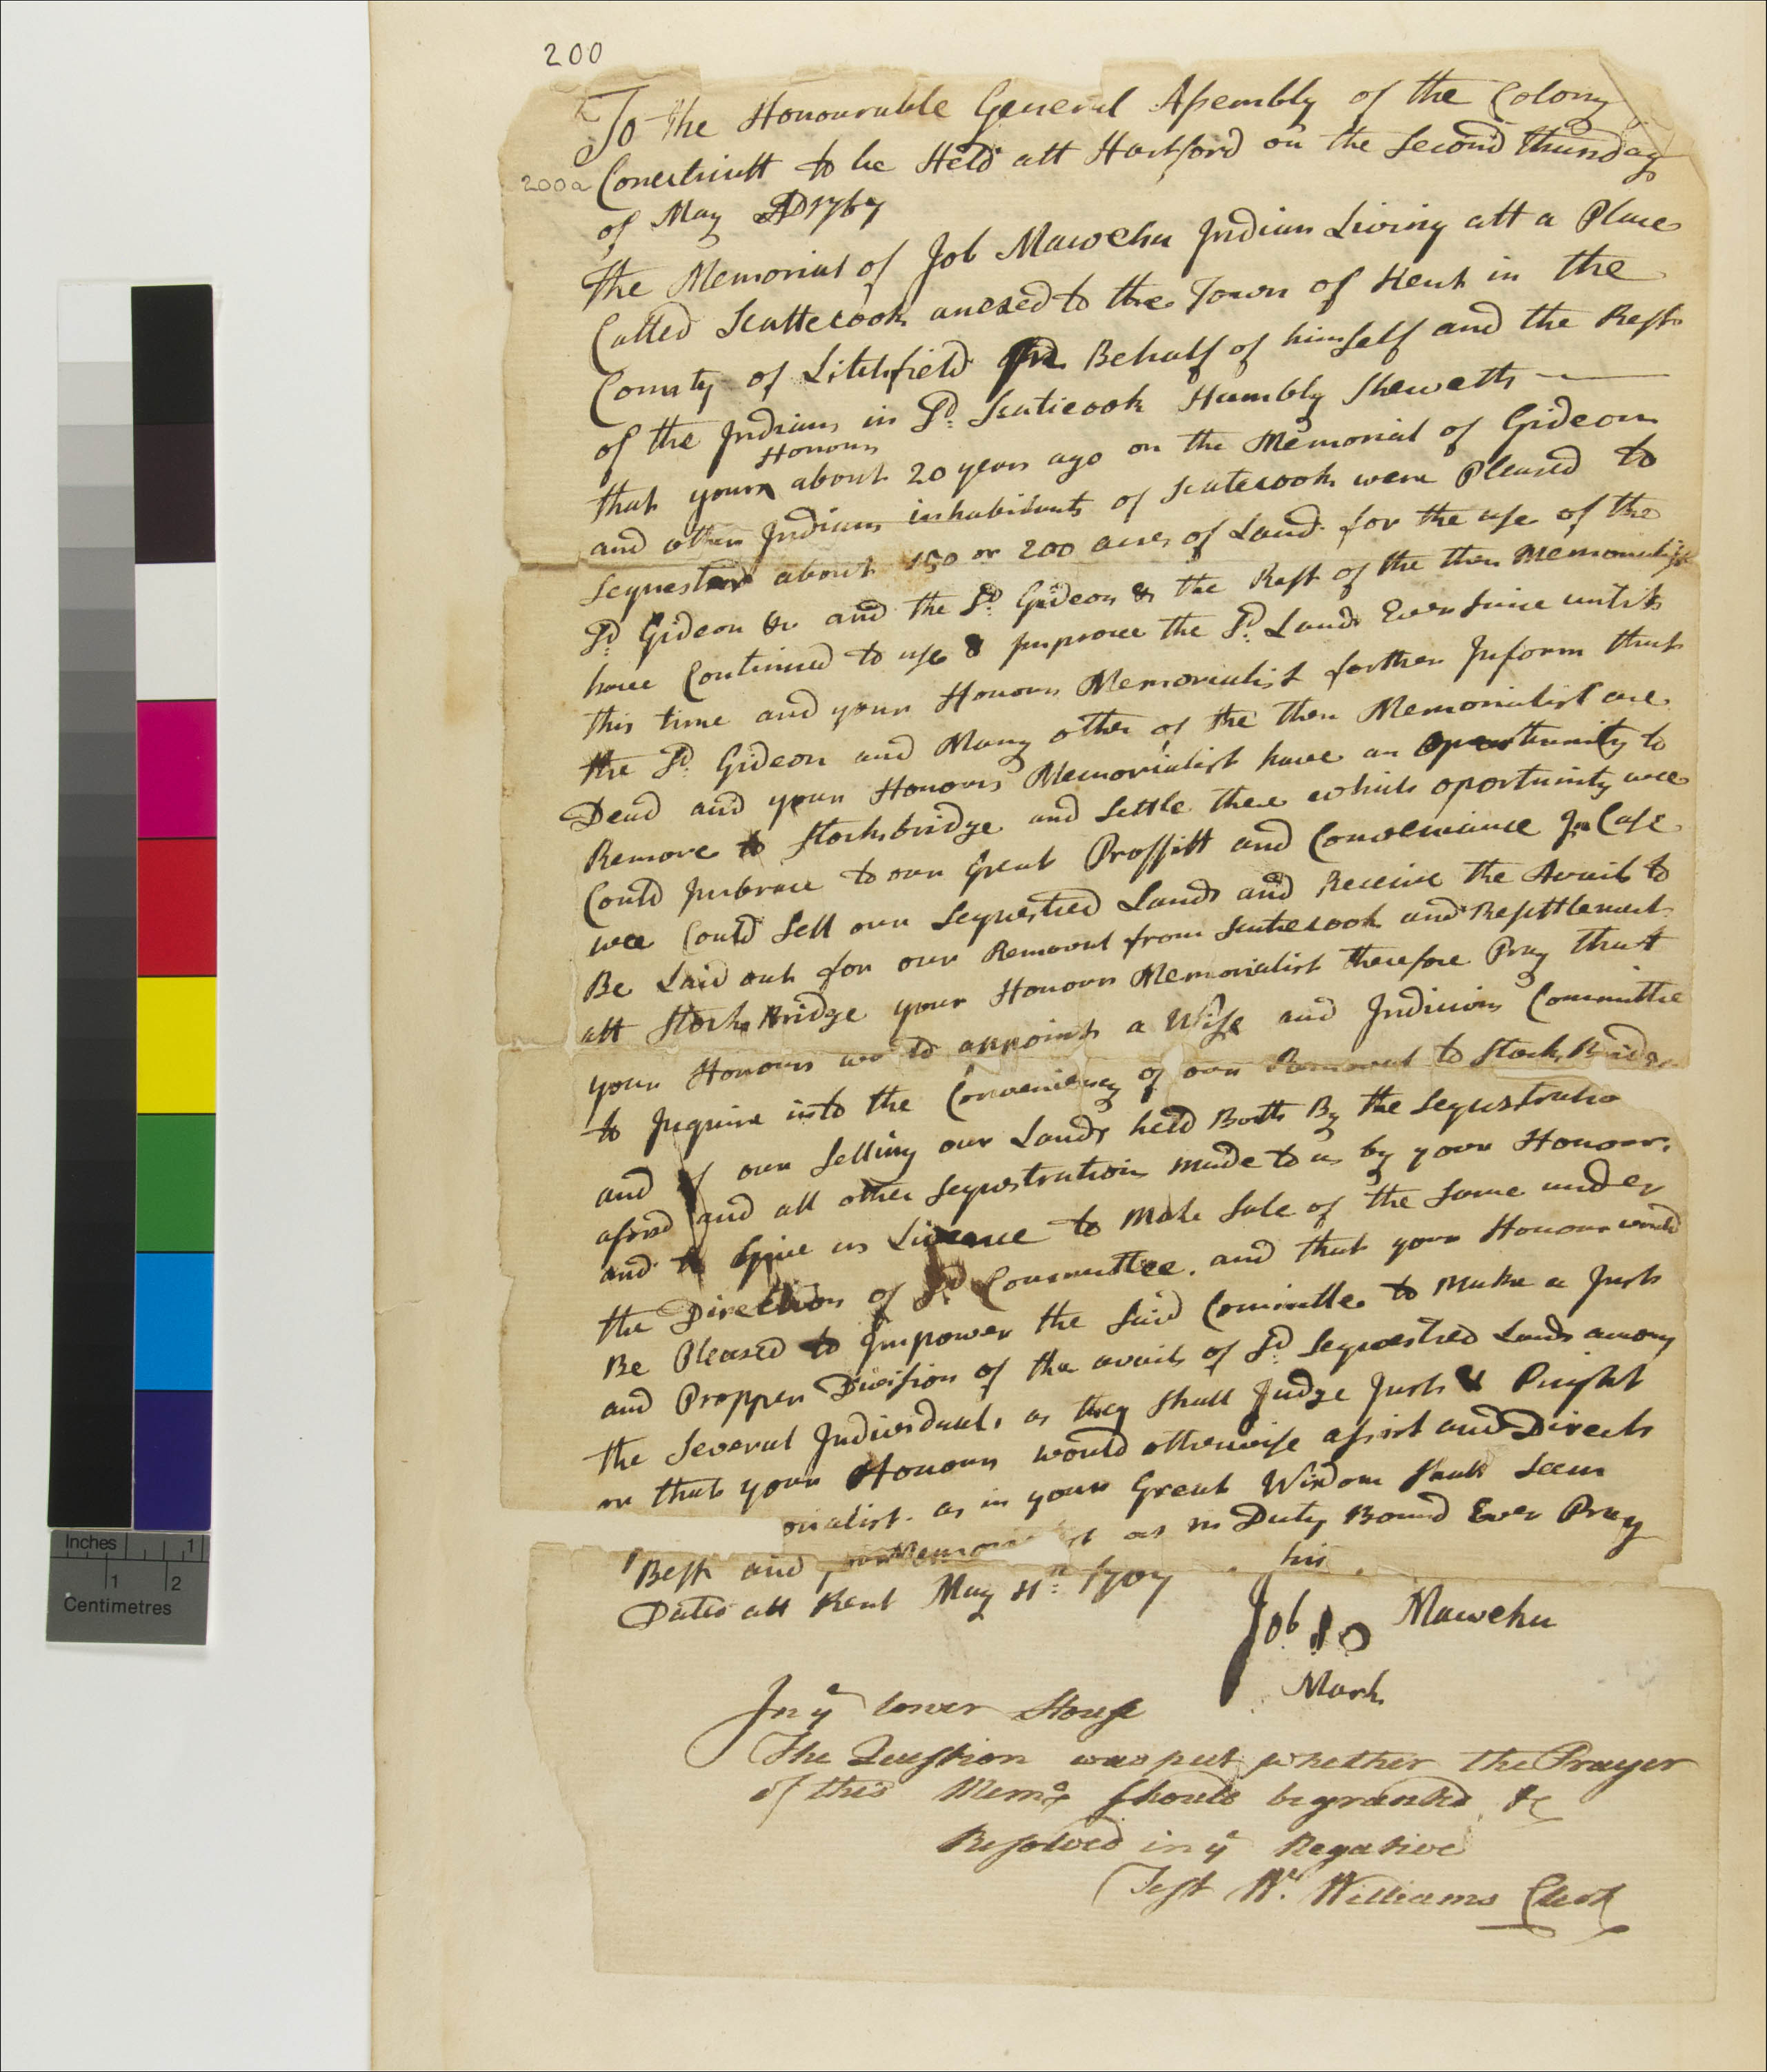 200
To the Honourable General Assembly of the Colony
200a
Conecticutt to be Held att Hartford on the Second thursday
of May AD 1767
The Memorial of Job Mawehu Indian Living att a Place
Called Scattecook anexed to the Town of Kent in the
County of Litchfield In Behalf of himself and the Rest
of the Indians in Sd: Scaticook Humbly Sheweth
Honours
that your about 20 years ago on the Memorial of Gideon
and other Indians inhabitants of Scatecook were Pleased to
Sequester about 150 or 200 acres of Land for the use of the
Sd: Gideon &c and the Sd: Gideon & the Rest of the then Memorialist
have Continued to use & Improve the Sd: Lands Ever Since untill
this time and your Honours Memorialist further Inform that
the Sd: Gideon and Many other of the then Memorialist are
Dead and your Honours Memorialist have an oportunity to
Remove to Stockbridge and Settle there which oportunity wee
Could Imbrace to our Great Proffitt and Conveniance In Case
wee Could Sell our Sequestred Lands and Receive the Avails to
Be Laid out for our Removal from Scattecook and Resettlement
att Stock Bridge your Honours Memorialist therefore Pray that
your Honours would appoint a Wise and Judicious Committee
to Inquire into the Conveniency of our Removal to Stock Bridge
and of our Selling our Lands held Both By the Sequestratio
aforsd and all other Sequestrations made to us by your Honours
and to Give us Licence to Make Sale of the Same under
the Direction of Sd Committee. and that your Honours would
Be Pleased to Impower the Said Committee to Make a Just
and Propper Division of the avails of Sd: Sequestred Lands among
the Several Individuals as they Shall Judge Just & Right
or that your Honours would otherwise assist and Direct
orialist as in your Great Wisdom Shall Seem
Best and your Memorialist as in Duty Bound Ever Pray
Dated att Kent May 1767
his
Job Mawehu
Mark
In ye lower House
The Question was put whether the Prayer
of this Memo should be granted &c
Resolved in ye Negative
Test Wm. Williams Clerk
Inches 1
1 2
Centimetres